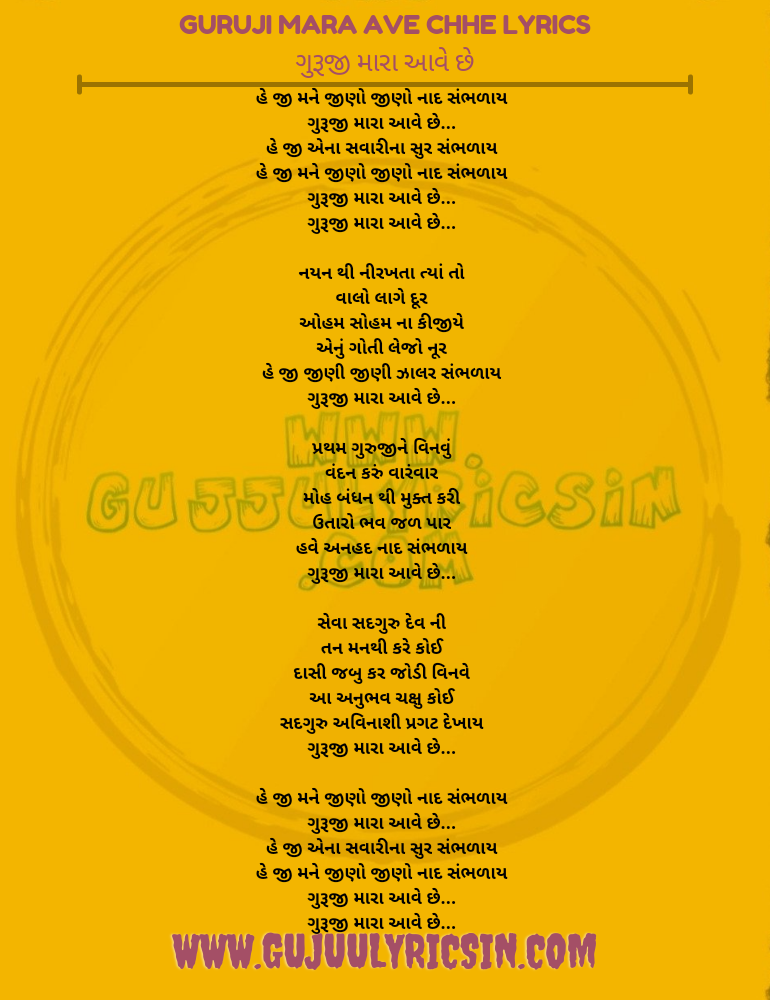 GURUJI MARA AVE CHHE LYRICS
ગુરૂજી મારા આવે છે
હે જી મને જીણો જીણો નાદ સંભળાય
ગુરૂજી મારા આવે છે...
હે જી એના સવારીના સુર સંભળાય
હે જી મને જીણો જીણો નાદ સંભળાય
ગુરૂજી મારા આવે છે...
ગુરૂજી મારા આવે છે...
નયન થી નીરખતા ત્યાં તો
વાલો લાગે દૂર
ઓહમ સોહમ ના કીજીયે
એનું ગોતી લેજો નૂર
હે જી જીણી જીણી ઝાલર સંભળાય
ગુરૂજી મારા આવે છે...
પ્રથમ ગુરુજીને વિનવું
વંદન કરું વારંવાર
મોહ બંધન થી મુક્ત કરી
ઉતારો ભવ જળ પાર
હવે અનહદ નાદ સંભળાય
ગુરૂજી મારા આવે છે...
સેવા સદગુરુ દેવ ની
તન મનથી કરે કોઈ
દાસી જબુ કર જોડી વિનવે
આ અનુભવ ચક્ષુ કોઈ
સદગુરુ અવિનાશી પ્રગટ દેખાય
ગુરૂજી મારા આવે છે...
હે જી મને જીણો જીણો નાદ સંભળાય
ગુરૂજી મારા આવે છે...
હે જી એના સવારીના સુર સંભળાય
હે જી મને જીણો જીણો નાદ સંભળાય
ગુરૂજી મારા આવે છે...
ગુરૂજી મારા આવે છે...
WWW.GUJUULYRICSIN.COM
WWW.
GUJJULYRICSIN
.COM